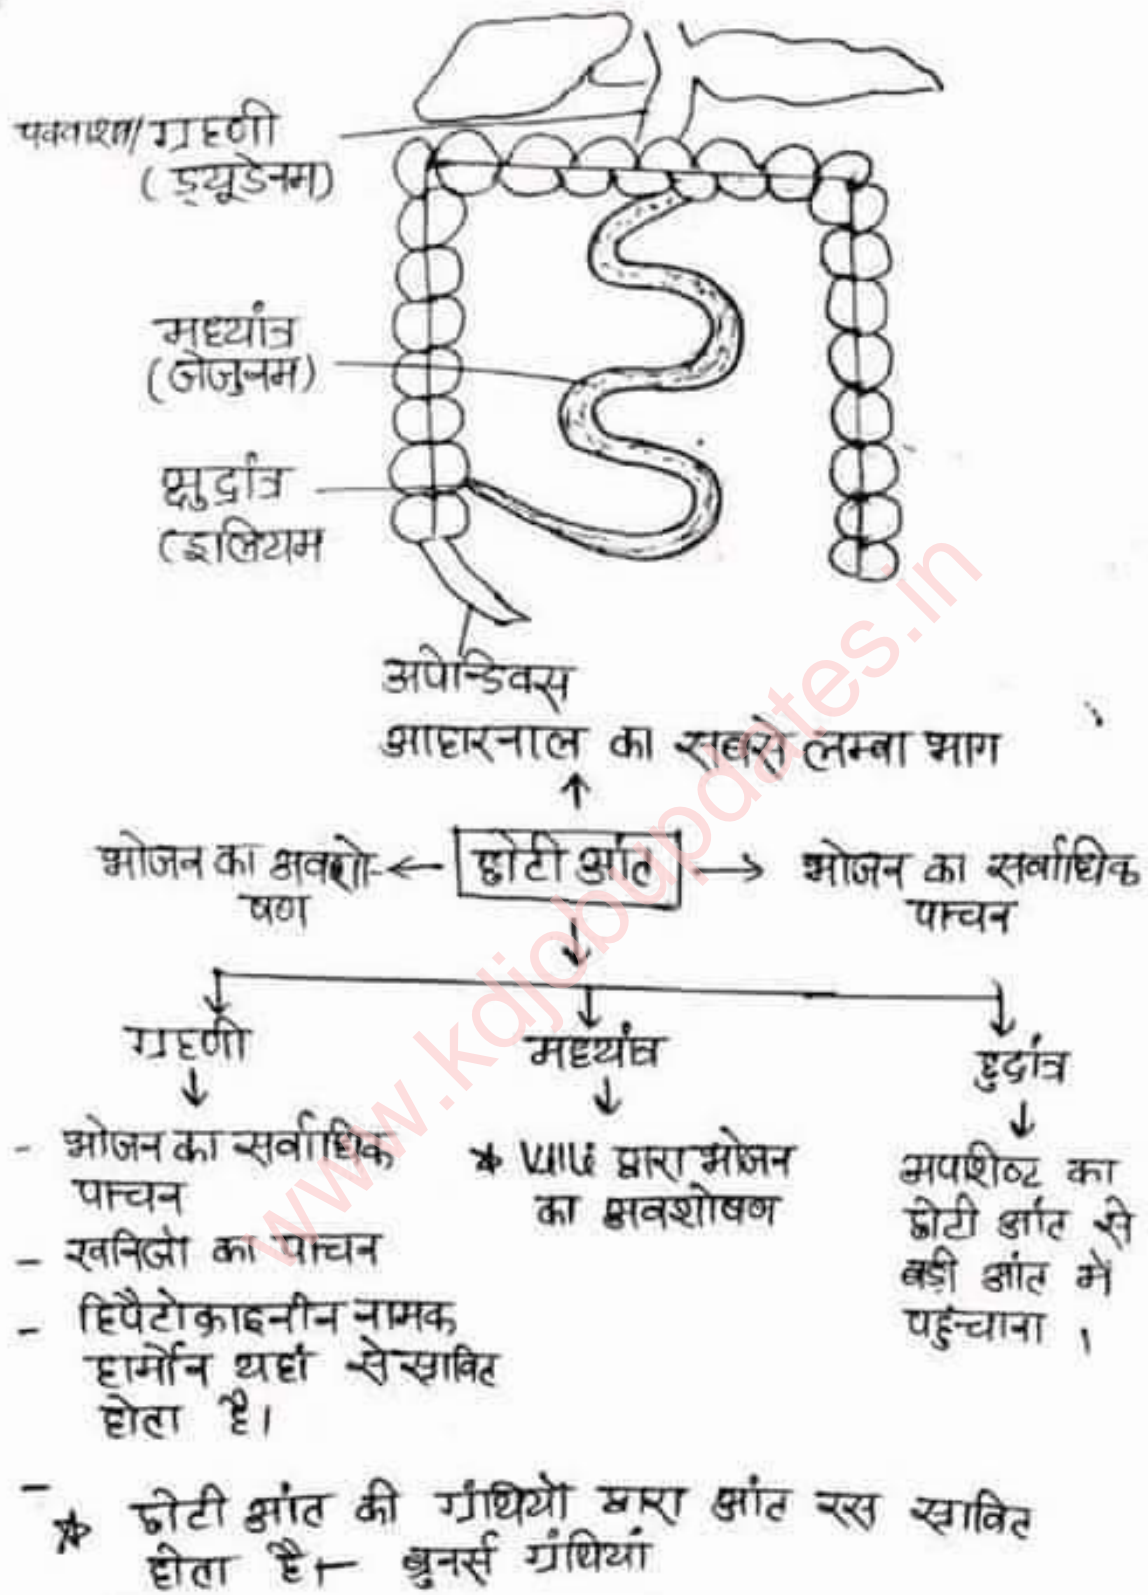 पक्वाशय/ग्रहणी
(ड्यूडेनम)
मध्यांत्र
(जेजुनम)
क्षुद्रांत्र
(इलियम
अपेन्डिक्स
आहारनाल का सबसे लम्बा भाग
भोजन का अवशो-
षण
छोटी आंत
भोजन का सर्वाधिक
पाचन
ग्रहणी
मध्यांत्र
छुद्रांत्र
- भोजन का सर्वाधिक
पाचन
- खनिजो का पाचन
- हिपैटोक्राइनीन नामक
हार्मोन यहां से स्रावित
होता है।
* Villi द्वारा भोजन
का अवशोषण
अपशिष्ट का
छोटी आंत से
बड़ी आंत में
पहुंचाना ।
-
* छोटी आंत की ग्रंथियो द्वारा आंत रस स्रावित
होता है।- ब्रुनर्स ग्रंथियां
www.kdjobupdates.in